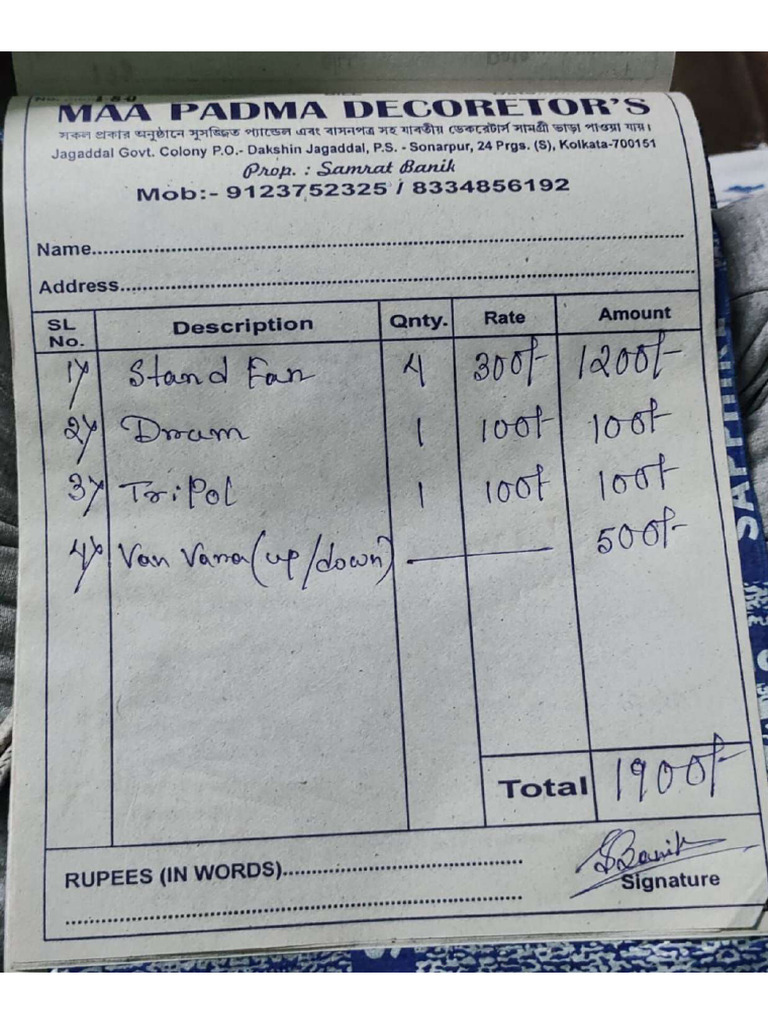 MAA PADMA DECORETOR'S
সকল প্রকার অনুষ্ঠানে সুসজ্জিত প্যান্ডেল এবং বাসনপত্র সহ যাবতীয় ডেকরেটার্স সামগ্রী ভাড়া পাওয়া যায়।
Jagaddal Govt. Colony P.O.- Dakshin Jagaddal, P.S. - Sonarpur, 24 Prgs. (S), Kolkata-700151
Prop. : Samrat Banik
Mob:- 9123752325 / 8334856192
Name
Address
SL No. Description Qnty. Rate Amount
1) Stand Fan 4 300/- 1200/-
2) Drum 1 100/- 100/-
3) Tripol 1 100/- 100/-
4) Van Vara (up/down) — 500/-
Total 1900/-
RUPEES (IN WORDS)
S Banik
Signature
SAPPHIRE